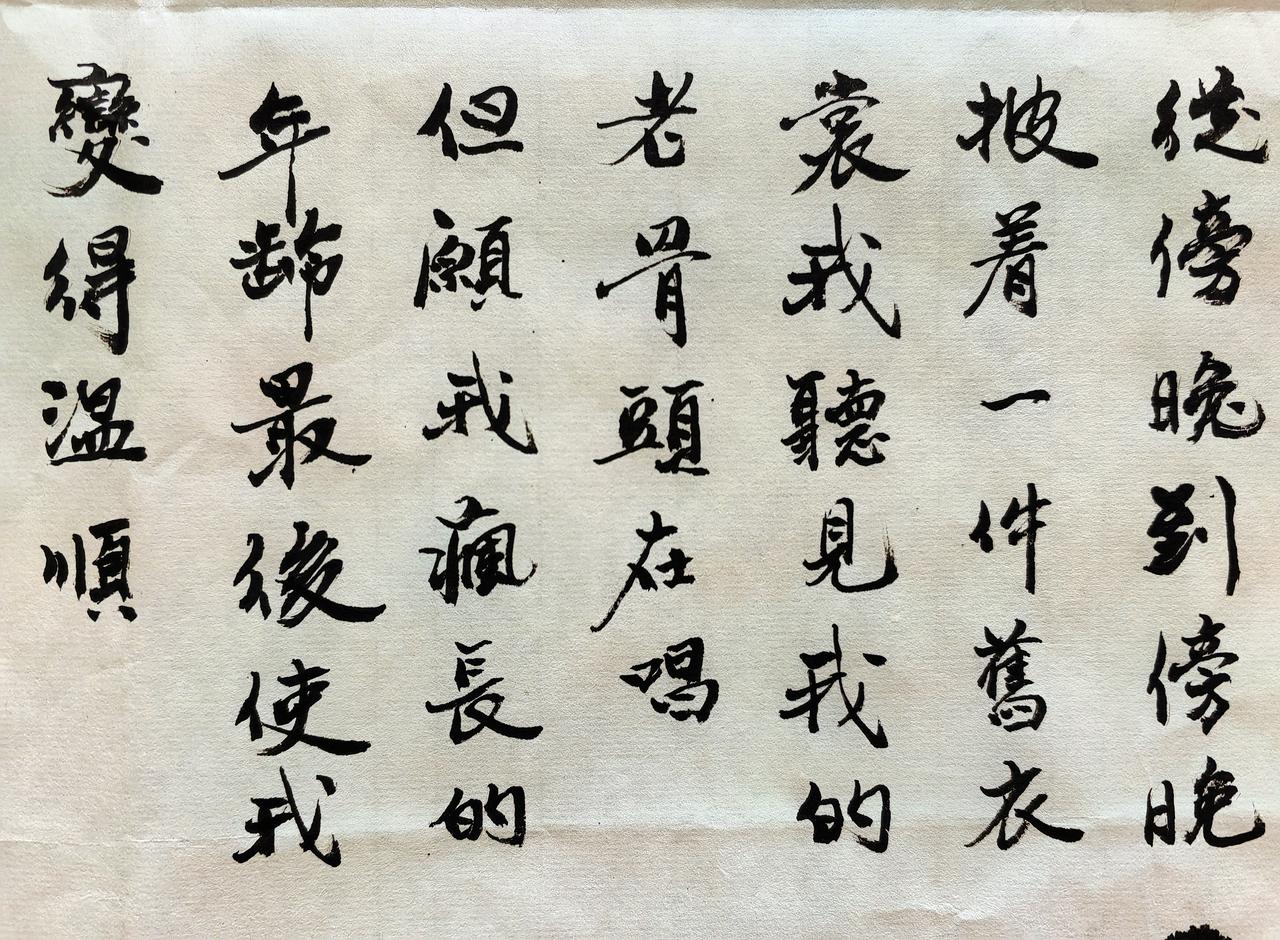 從傍晚到傍晚
披着一件舊衣
裳我聽見我的
老骨頭在唱
但願我瘋長的
年齡最後使我
變得溫順